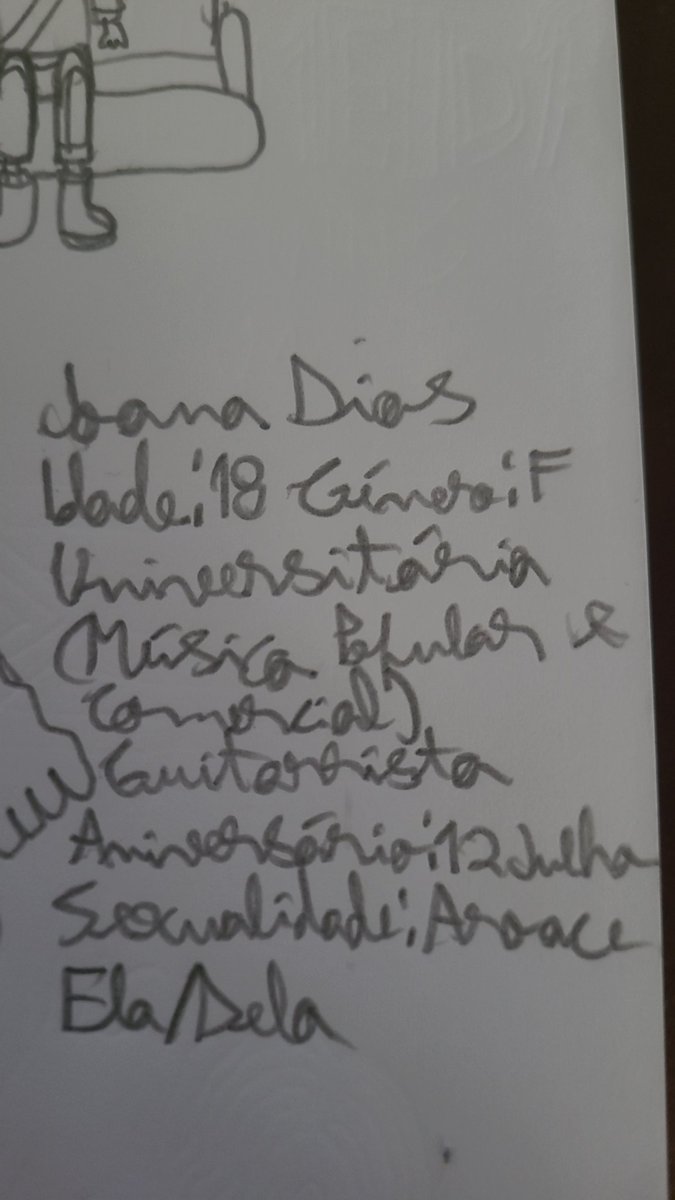 Joana Dias
Idade: 18 Género: F
Universitária
(Música Popular e
Comercial)
Guitarrista
Aniversário: 12 Julho
Sexualidade: Aroace
Ela/Dela